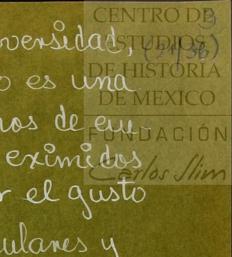 CENTRO DE
ESTUDIOS
DE HISTORIA
DE MEXICO
FUNDACIÓN
Carlos Slim
oversidad,
o es una
nos de eu-
eximidos
r el gusto
ulares y